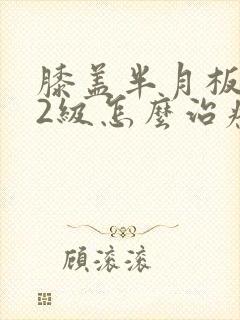 膝盖半月板
2級怎麼治
顾滚滚